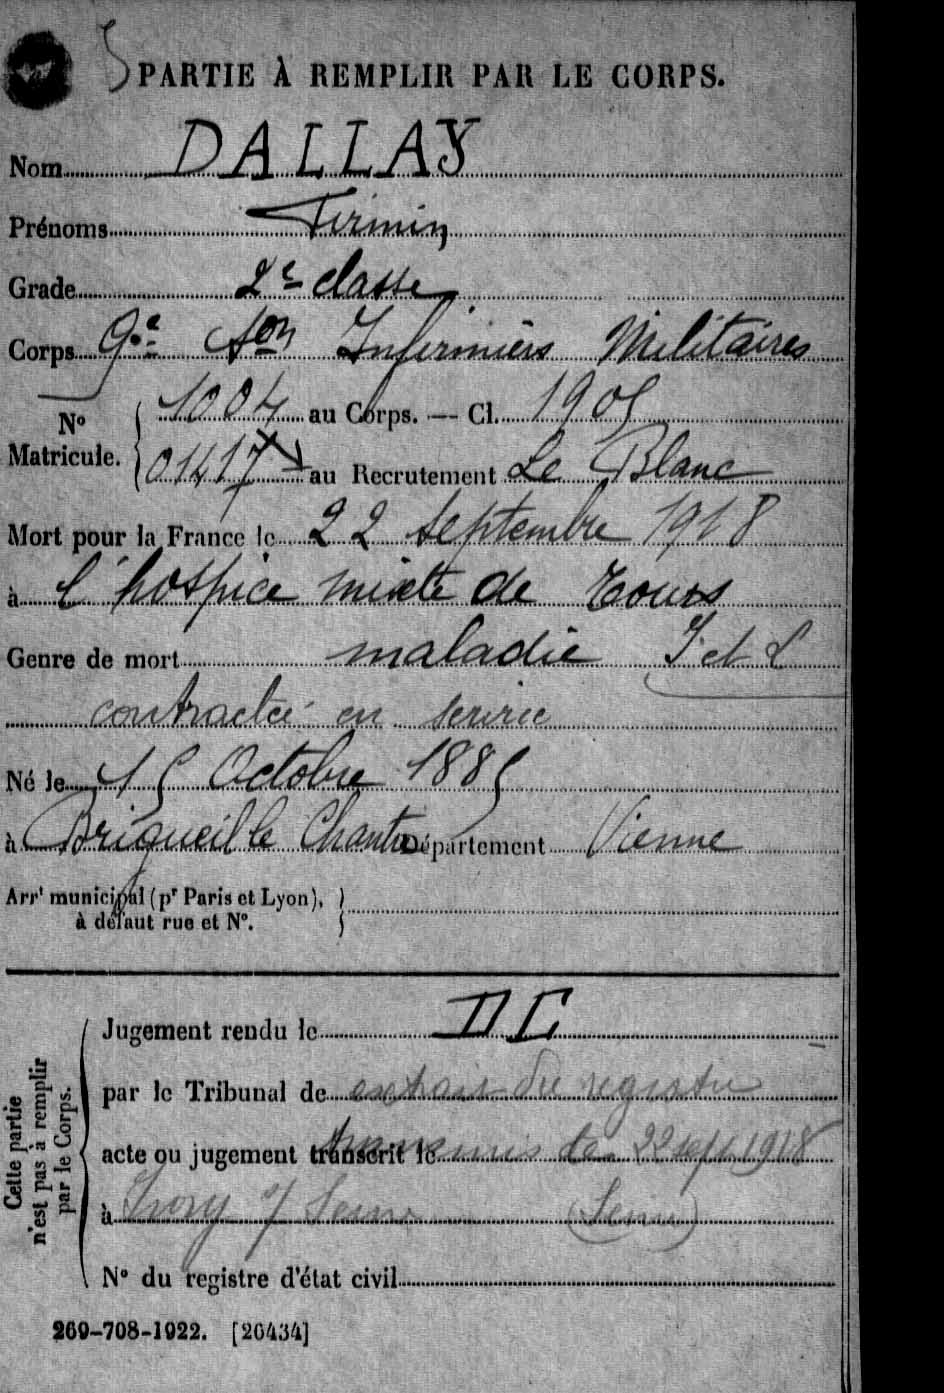 PARTIE À REMPLIR PAR LE CORPS.
Nom DALLAY
Prénoms Firmin
Grade 2e classe
Corps 9e Son Infirmiers Militaires
No Matricule. 1004 au Corps. — Cl. 1905
01417 au Recrutement Le Blanc
Mort pour la France le 22 septembre 1918
à l'hospice mixte de Tours
Genre de mort maladie
contractée en service
Né le 15 Octobre 1885
à Brigueil le Chantre Département Vienne
Arrt municipal (pr Paris et Lyon),
à défaut rue et No.
Cette partie n'est pas à remplir par le Corps.
Jugement rendu le DC
par le Tribunal de extrait du registre
acte ou jugement transcrit le transmis le 22 sept 1918
à Ivry s/ Seine (Seine)
No du registre d'état civil
269-708-1922. [26434]